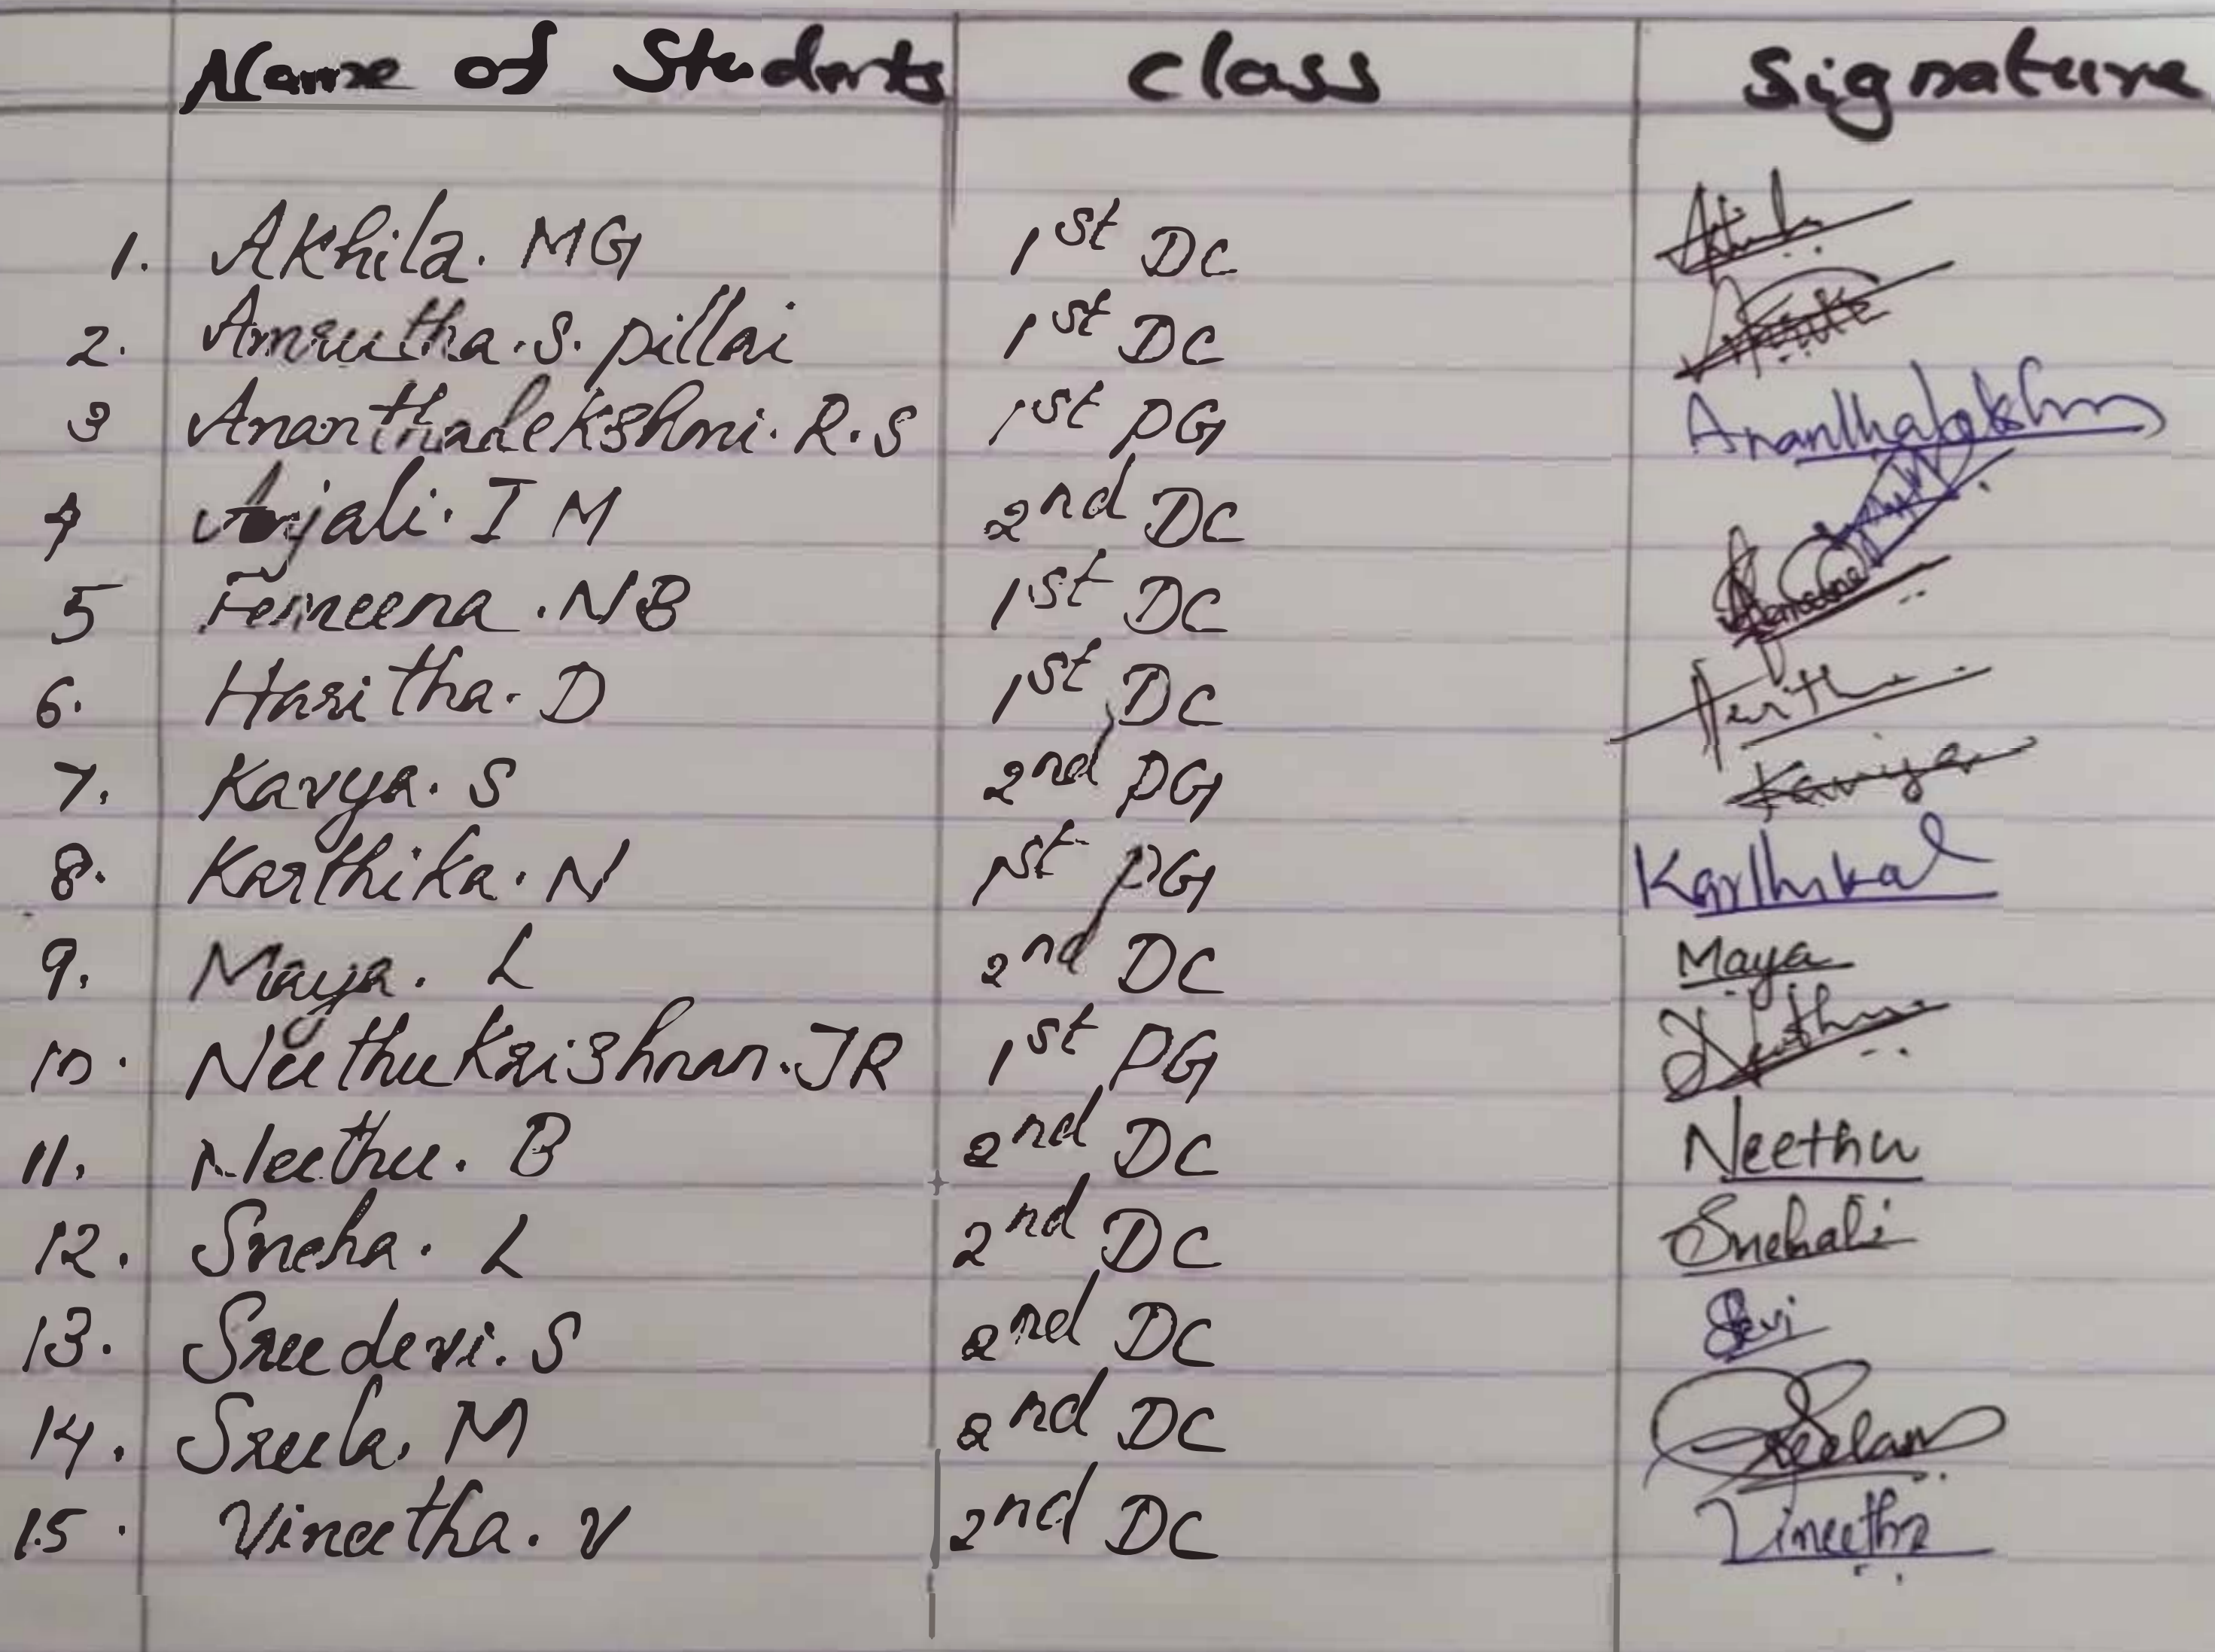 Name of Students Class Signature
1. Akhila. MG 1st DC
2. Amrutha. S. pillai 1st DC
3 Ananthalekshmi. R. S 1st PG Ananthalekshmi
4 Anjali. I M 2nd DC
5 Femeena. NB 1st DC
6. Haritha. D 1st DC Haritha
7. Kavya. S 2nd PG Kaviya
8. Karthika. N 1st PG Karthika
9. Maya. L 2nd DC Maya
10. Neethu Krishnan. JR 1st PG Neethu
11. Neethu. B 2nd DC Neethu
12. Sneha. L 2nd DC Snehali
13. Sreedevi. S 2nd DC
14. Sreela. M 2nd DC
15. Vineetha. V 2nd DC Vineetha